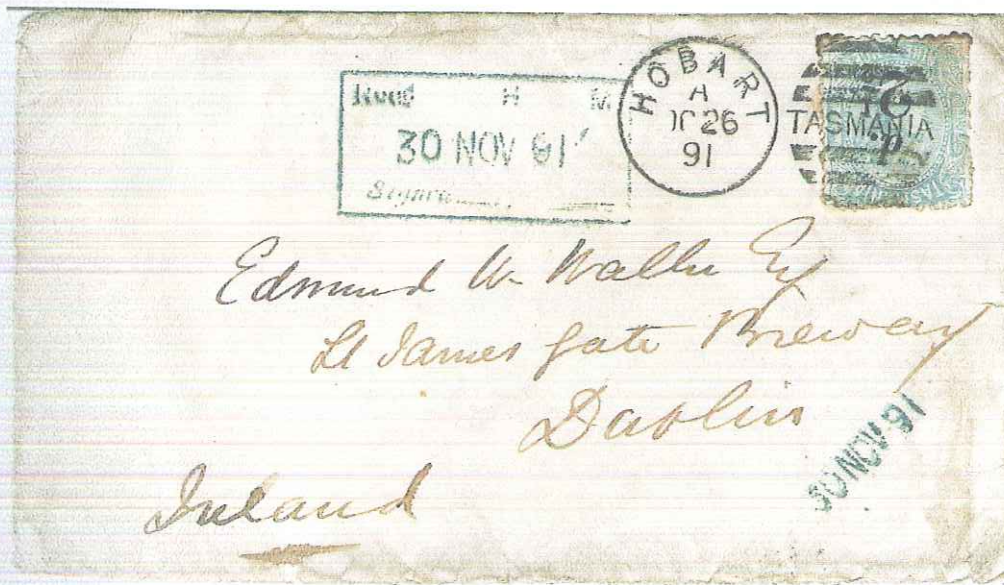 Recd H M
30 NOV 91
HOBART
A
26
91
TASMANIA
2
d.
Edmund W. Waller Esq
St James Gate Brewery
Dublin
Ireland
30 NOV 91